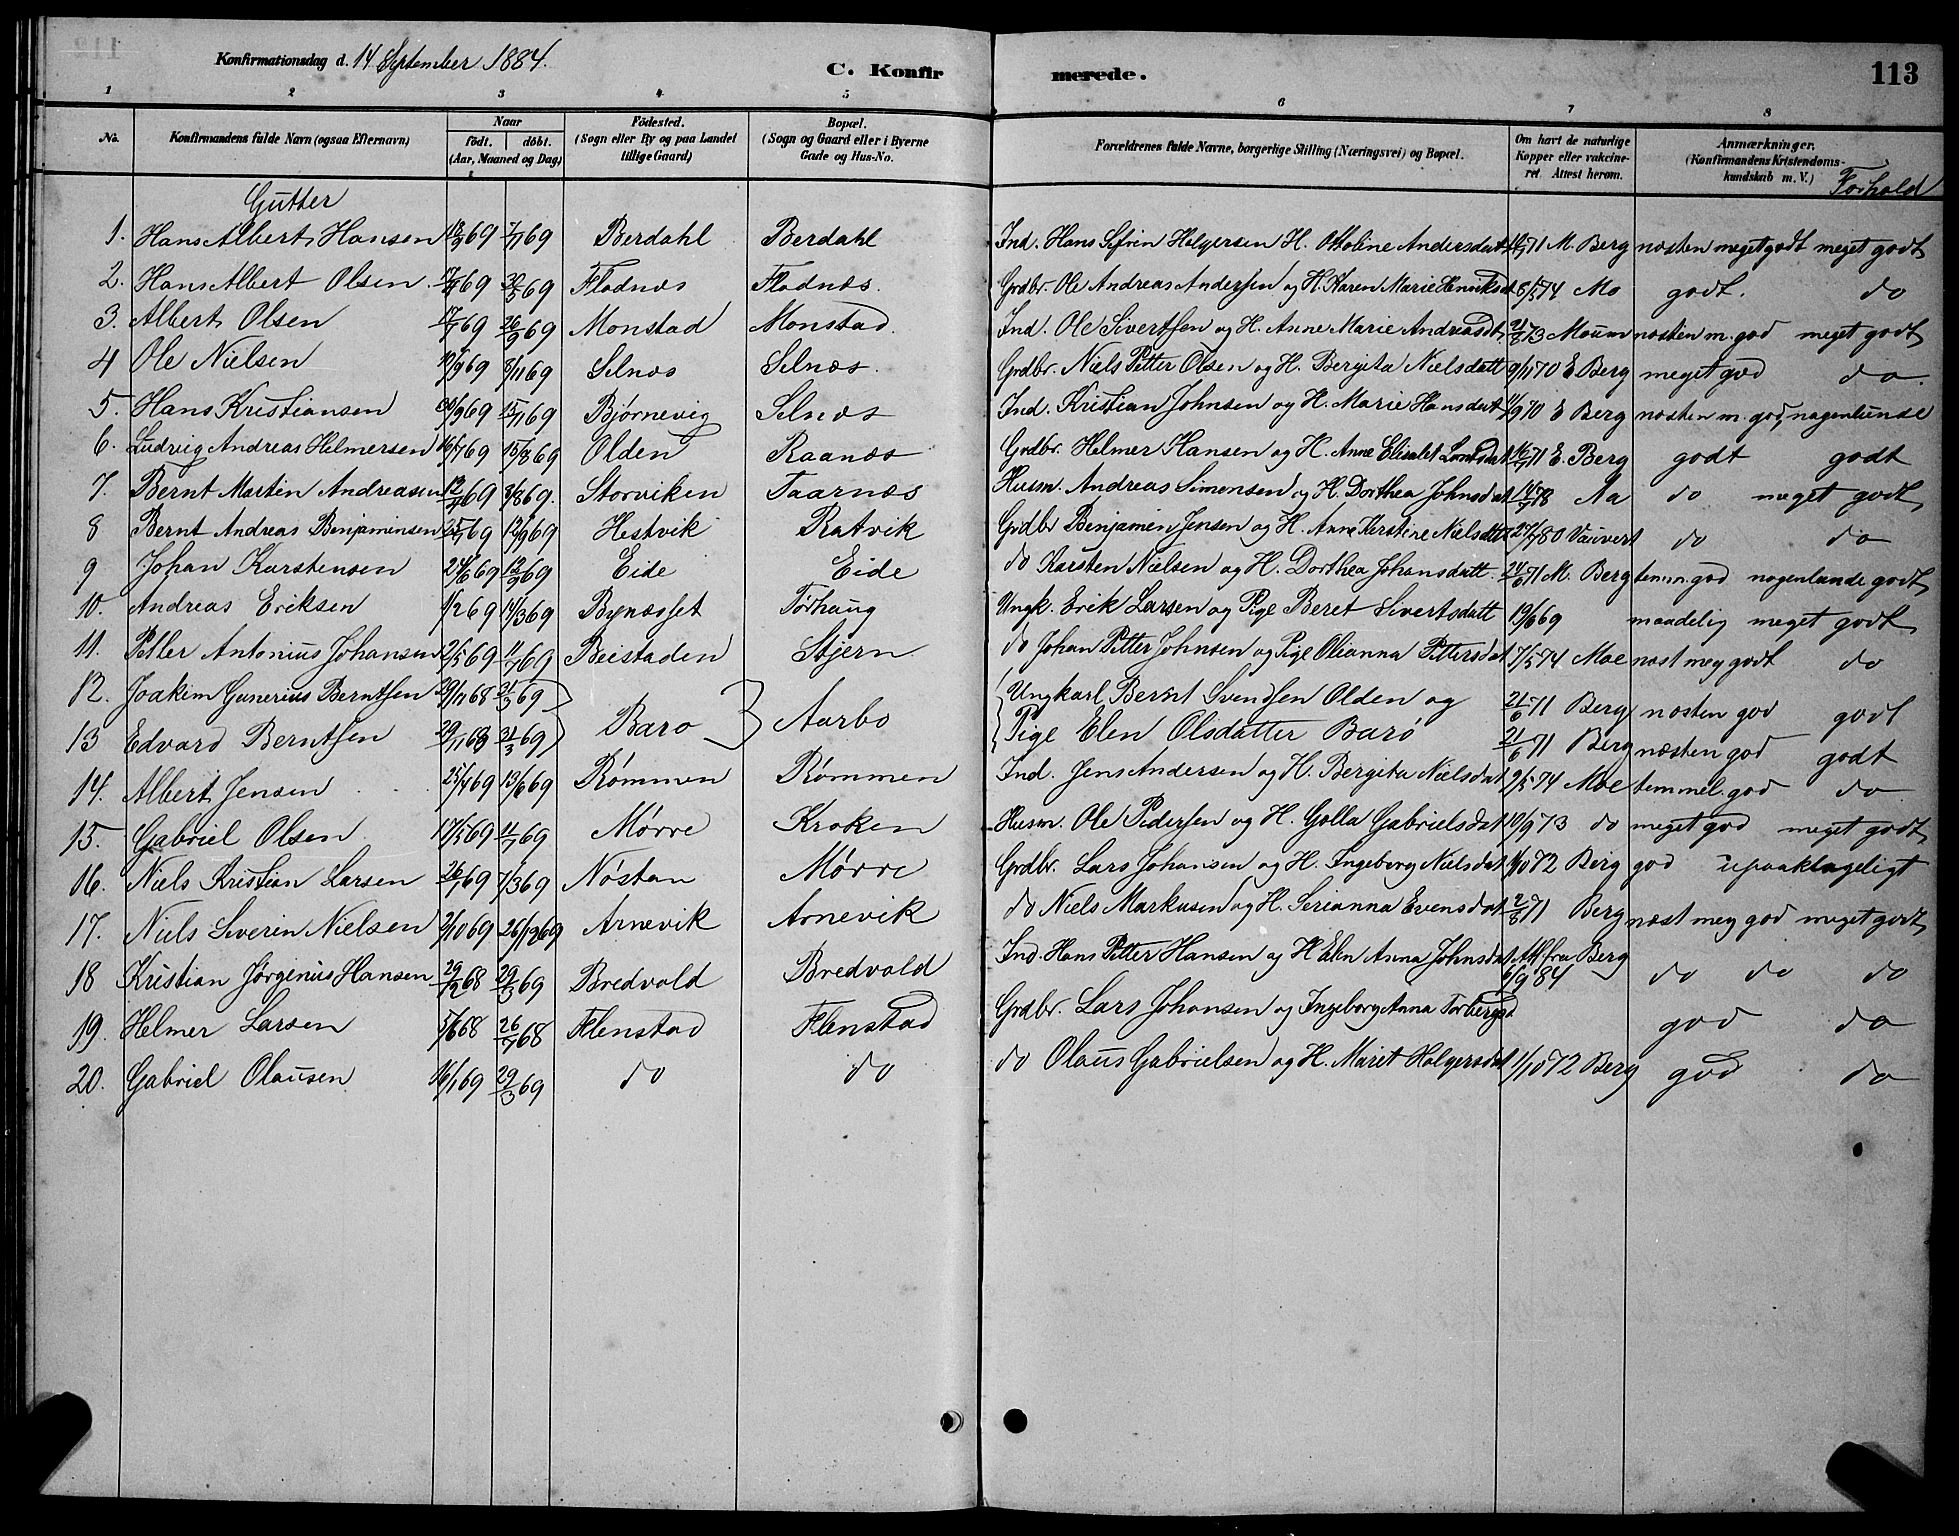 Konfirmationsdag d. 14 September 1884.
C. Konfirmerede.
113
1 2 3 4 5 6 7 8
No. Konfirmandens fulde Navn (ogsaa Efternavn) Naar födt. döbt. (Aar, Maaned og Dag) Födested. (Sogn eller By og paa Landet tillige Gaard) Bopæl. (Sogn og Gaard eller i Byerne Gade og Hus-No. Forældrenes fulde Navne, borgerlige Stilling (Næringsvei) og Bopæl. Om havt de naturlige Kopper eller vakcineret. Attest herom. Anmærkninger. (Konfirmandens Kristendomskundskab m. V.) Forhold
Gutter
1. Hans Albert Hansen 69 7/11 69 Berdahl Berdahl Ind. Hans Sefrin Holgersen H. Ottoline Andersdat 71 M. Berg næsten meget godt meget godt
2. Hans Albert Olsen 69 30/5 69 Fladnæs Fladnæs. Grdbr. Ole Andreas Andersen og H. Karen Marie Henriksd 8/5 74 Mo godt. do
3. Albert Olsen 17/7 69 26/9 69 Monstad Monstad. Ind. Ole Sivertsen og H. Anne Marie Andreasdt 21/8 73 næsten m. god meget godt
4 Ole Nielsen 10/9 69 7/11 69 Selnæs Selnæs. Grdbr. Niels Petter Olsen og H. Bergita Nielsdatt 9/11 70 E Berg meget god do.
5. Hans Kristiansen 30/9 69 15/11 69 Bjørnevig Selnæs Ind. Kristian Johnsen og H. Marie Hansdat 9 70 E Berg næsten m. god nogenlunde
6. Ludvig Andreas Helmersen 16/7 69 15/8 69 Olden Raanæs Grdbr. Helmer Hansen og H. Anne Elisabet 71 E. Berg godt godt
7. Bernt Martin Andreasen 69 8/8 69. Storviken Taarnæs Husm. Andreas Simonsen og H. Dorthea Johnsdat 78 Aa do meget godt
8 Bernt Andreas Benjaminsen 25/7 69 12/9 69 Hestvik Ratvik Grdbr Benjamin Jensen og H. Anne Kerstine Nielsdtt 27/7 80 do do
9 Johan Karstensen 24/6 69 12/9 69 Eide Eide do Karsten Nielsen og H. Dorthea Johansdatt. 24/6 71 M. Berg temm. god nogenlunde godt
10. Andreas Eriksen 1/2 69 14/3 69 Bynæsset Tørhaug Ungk. Erik Larsen og Pige Beret Sivertsdatt 19/6 69 maadelig meget godt
11. Petter Antonius Johansen 2/5 69 11/7 69 Beistaden Stjern do Johan Petter Johnsen og Pige Olianna Pettersdat 7/5 74 Moe næst meg godt do
12. Joakim Gunerius Berntsen 29/11 68 21/3 69 Barø Aarbo Ungkarl Bernt Svendsen Olden og 21/6 71 Berg næsten god godt
13 Edvard Berntsen 29/11 68 21/3 69 Pige Elen Olsdatter Barø 21/6 71 Berg næsten god godt
14. Albert Jensen 25/4 69 13/6 69 Rømmen Rømmen Ind. Jens Andersen og H. Bergita Nielsdat 2/5 74 Moe temmel. god do
15. Gabriel Olsen 17/5 69 11/7 69 Mørre Kroken Husm. Ole Pedersen og H. Golla Gabrielsdat 10/9 73 do meget god meget godt
16. Niels Kristian Larsen 26/1 69 7/3 69 Nøstan Mørre Grdbr. Lars Johansen og H. Ingeborg Nielsdat 1/10 72 Berg god upaaklageligt
17. Niels Severin Nielsen 2/10 69 26/12 69 Arnevik Arnevik do Niels Markusen og H. Serianna Evensdat 2/8 71 Berg næst meg god meget godt
18 Kristian Jørgenius Hansen 29/12 68 29/3 69 Bredvold Bredvold Ind. Hans Petter Hansen og H Elen Anna Johnsdat Att fra Berg 6/9 84 do do do
19. Helmer Larsen 5/6 68 26/7 68 Flenstad Flenstad Grdbr. Lars Johansen og Ingeborg Anna Torbergsd god do
20. Gabriel Olausen 16/1 69 29/3 69 do do do Olaus Gabrielsen og H. Maret Holgersdat 1/10 72 Berg god do